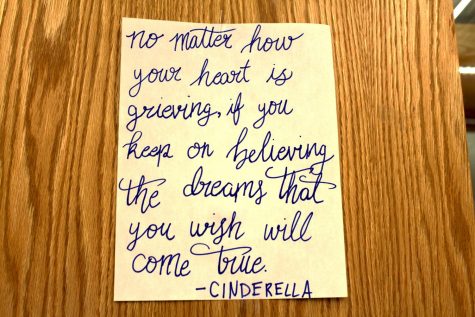 no matter how
your heart is
grieving, if you
keep on believing
the dreams that
you wish will
come true.
-CINDERELLA